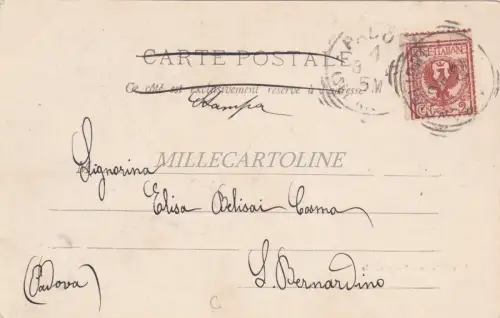 CARTE POSTALE
Ce côté est exclusivement réservé à l'adresse
Stampa
MILLECARTOLINE
Signorina
Elisa Belisai Cosma
(Padova)
S. Bernardino
C